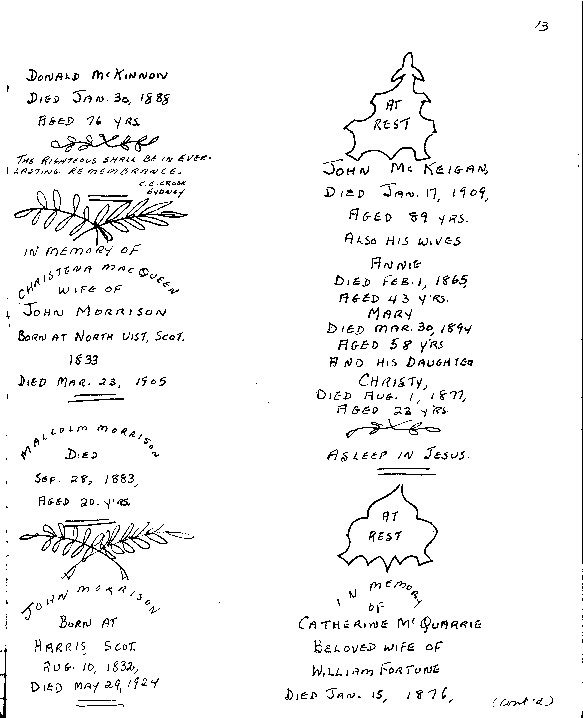 13
DONALD McKINNON
DIED JAN. 30, 1888
AGED 76 YRS.
THE RIGHTEOUS SHALL BE IN EVER-
LASTING REMEMBRANCE.
C.E. CROOK
SYDNEY
IN MEMORY OF
CHRISTENA MACQUEEN
WIFE OF
JOHN MORRISON
BORN AT NORTH UIST, SCOT.
1833
DIED MAR. 23, 1905
MALCOLM MORRISON
DIED
SEP. 28, 1883,
AGED 20 Y'RS.
JOHN MORRISON
BORN AT
HARRIS, SCOT.
AUG. 10, 1832,
DIED MAY 29, 1924
AT
REST
JOHN McKEIGAN,
DIED JAN. 17, 1909,
AGED 89 YRS.
ALSO HIS WIVES
ANNIE
DIED FEB. 1, 1865,
AGED 43 Y'RS.
MARY
DIED MAR. 30, 1894
AGED 58 Y'RS
AND HIS DAUGHTER
CHRISTY,
DIED AUG. 1, 1877,
AGED 23 YRS.
ASLEEP IN JESUS.
AT
REST
IN MEMORY
OF
CATHERINE McQUARRIE
BELOVED WIFE OF
WILLIAM FORTUNE
DIED JAN. 15, 1876,
(cont'd)